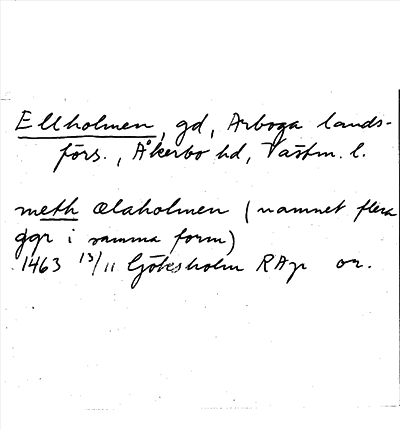 Ellholmen, gd, Arboga lands-
förs., Åkerbo hd, Västm. l.
meth ælaholmen (namnet flera
ggr i samma form)
1463 13/11 Göksholm RAp or.